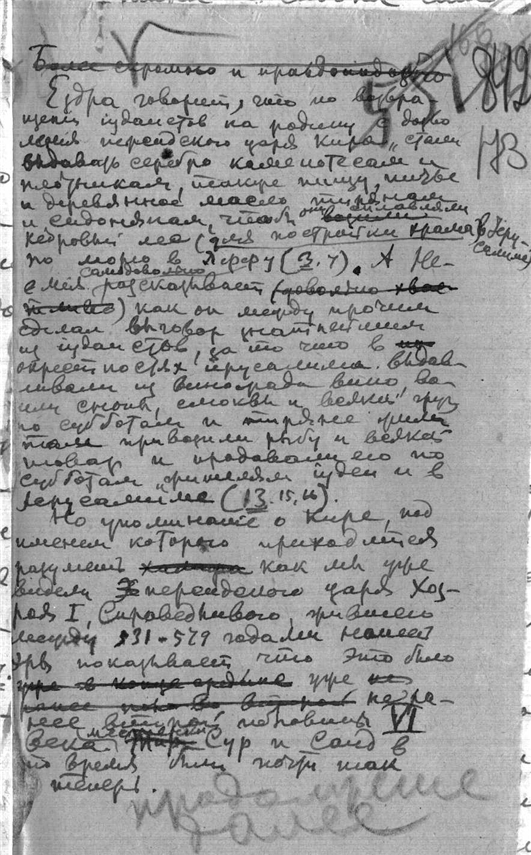 842
Более скромно и правдоподобно
Ездра говорит, что по возвра-
щении иудаистов на родину с дозво
ления персидского царя Кира „стали
выдавать серебро каменотесам и
плотникам, также пищу, питье
и деревянное масло тирянам
и сидонянам, чтоб они доставляли
кедровый лес (для постройки храма в Иеру-
салиме)
по морю в Яффу (3.7). А Не-
емия самодовольно рассказывает (довольно хвас-
тливо) как он между прочим
сделал выговор знатнейшим
из иудаистов за то что в
окрестностях Иерусалима выдав-
ливали из винограда вино, во-
зили снопы, смоквы и всякий груз
по субботам и тиряне жили
там привозили рыбу и всякий
товар и продавали его по
субботам жителям Иудеи и в
Иерусалиме (13.15,16).
Но упоминание о Кире, под
именем которого приходится
разуметь как мы уже
видели персидского царя Хоз-
роя I, Справедливого, жившего
между 531-579 годами нашей
эры показывает, что это было
уже в конце уже не
ранее второй не ра-
нее второй половины VI
века (местечки Сур и Саид в
то время были почти так
теперь.
продолжение
далее